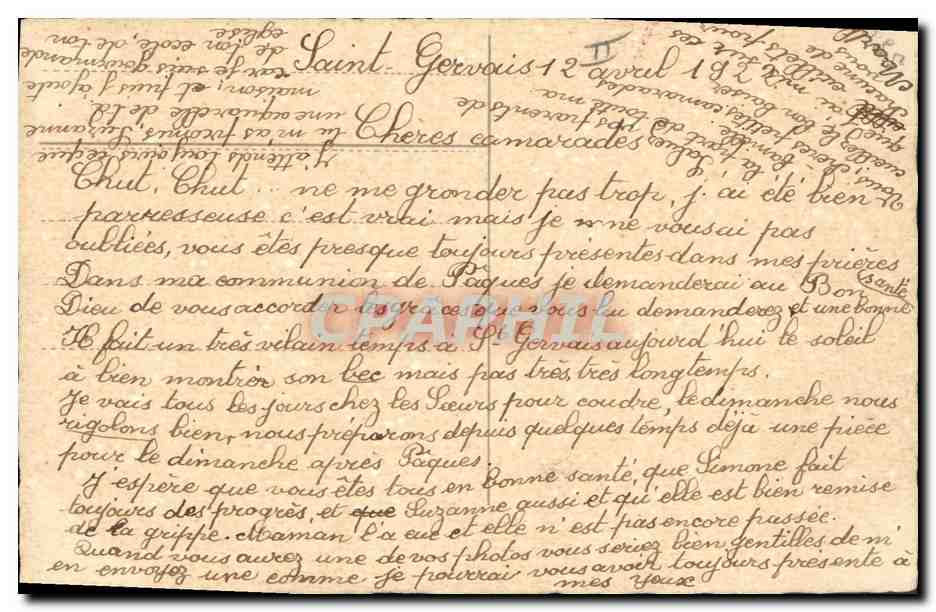 Saint-Gervais 12 avril 192
Cheres camarades
Chut, Chut... ne me gronder pas trop, j'ai été bien
parresseuse c'est vrai mais je ne vous ai pas
oubliées, vous êtes presque toujours présentes dans mes prières
Dans ma communion de Pâques je demanderai au Bon
Dieu de vous accorder les grâces que vous lui demanderez et une bonne santé
Il fait un très vilain temps à St Gervais aujourd'hui le soleil
à bien montrer son bec mais pas très, très longtemps.
Je vais tous les jours chez les Sœurs pour coudre, le dimanche nous
rigolons bien, nous préparons depuis quelques temps déjà une pièce
pour le dimanche après Pâques.
J'espère que vous êtes tous en bonne santé, que Simone fait
toujours des progrès, et que Suzanne aussi et qu'elle est bien remise
de la grippe. Maman l'a eue et elle n'est pas encore passée.
Quand vous aurez une de vos photos vous seriez bien gentilles de m'
en envoyez une comme je pourrai vous avoir toujours présente à
mes yeux
J'attends toujours ce que
tu m'as promis, Suzanne
une aquarelle de ta
maison, et puis j'ajoute
car je suis gourmande
de ton école, de ton
église
Saluez
la part de vos parents de
toute ma
famille
petites camarades
un bon baiser
chères
CPAPHIL